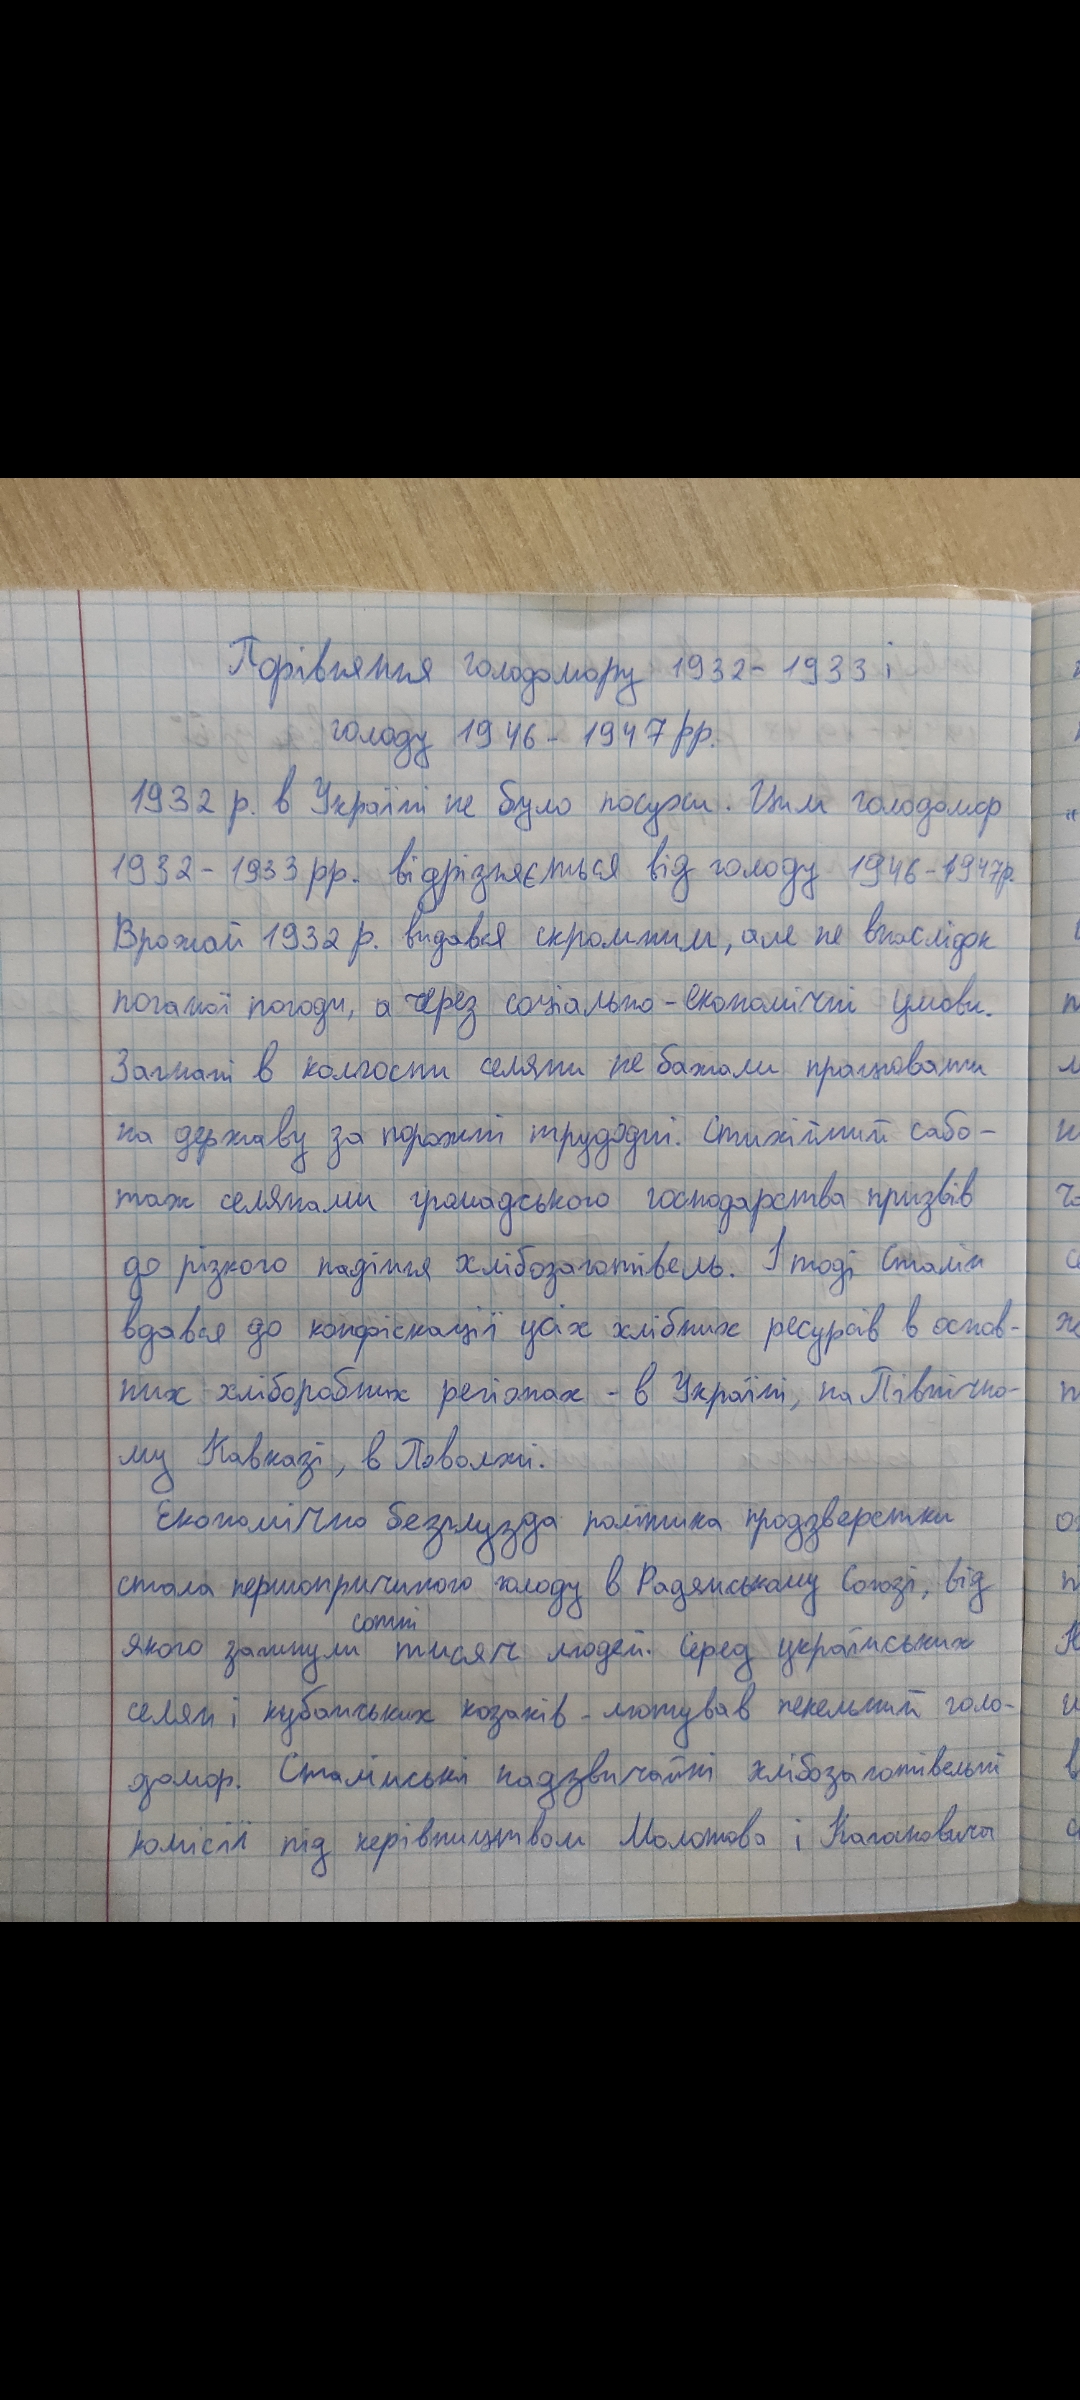 Порівняння голодомору 1932-1933 і
голоду 1946-1947 рр.
1932 р. в Україні не було посухи. Цим голодомор
1932-1933 рр. відрізняється від голоду 1946-1947р.
Врожай 1932 р. видався скромним, але не внаслідок
поганої погоди, а через соціально-економічні умови.
Загнані в колгоспи селяни не бажали працювати
на державу за порожні трудодні. Стихійний сабо-
таж селянами громадського господарства призвів
до різкого падіння хлібозаготівель. І тоді Сталін
вдався до конфіскації усіх хлібних ресурсів в основ-
них хліборобних регіонах - в Україні, на Північно-
му Кавказі, в Поволжі.
Економічно безглузда політика продзверстки
стала першопричиного голоду в Радянському Союзі, від
якого загинули сотні тисяч людей. Серед українських
селян і кубанських козаків - лютував пекельний голо-
домор. Сталінські надзвичайні хлібозаготівельні
комісії під керівництвом Молотова і Кагановича